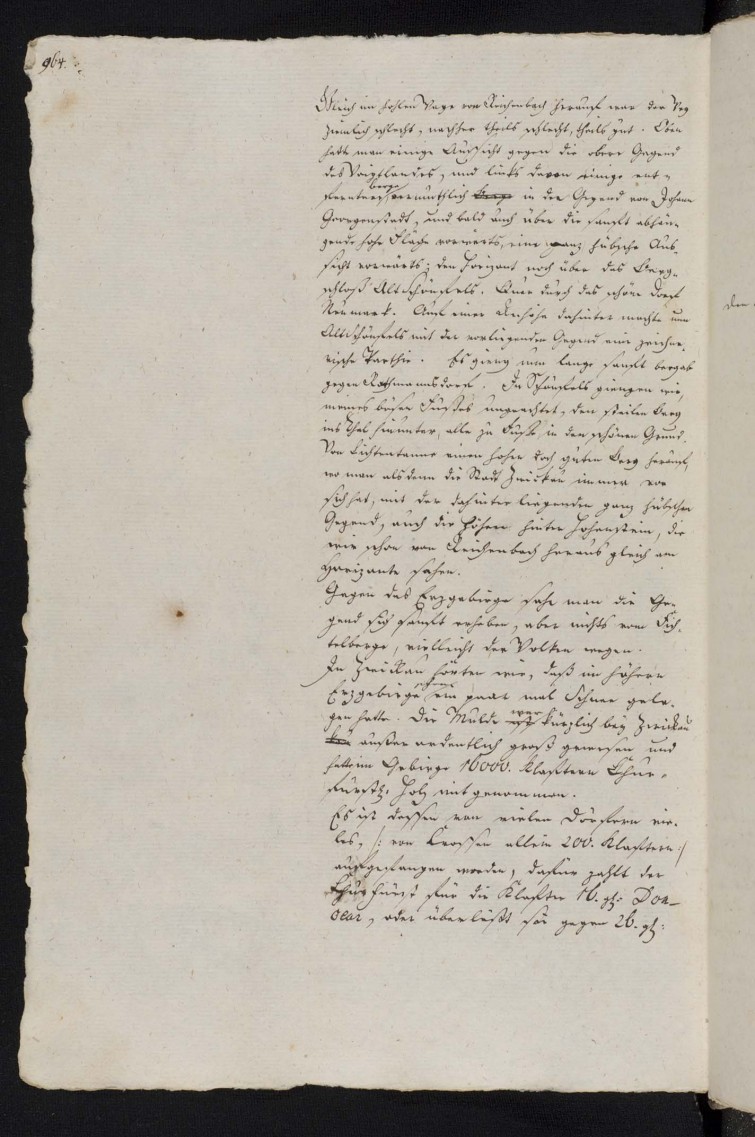 964.
Gleich im hohlen Wege von Reichenbach herauf war der Weg
ziemlich schlecht, nachher theils schlecht, theils gut. Oben
hatte man einige Aussicht gegen die obere Gegend
des Voigtlandes, und links davon einige ent-
fernte Berge vermuthlich in der Gegend von Johann
Georgenstadt, und bald auch über die sanft abhän-
gende hohe Fläche vorwärts, eine ganz hübsche Aus-
sicht vorwärts; den Horizont noch über das Berg-
schloß Alt Schönfels. Quer durch das schöne Dorf
Neumark. Auf einer Anhöhe dahinter machte nun
Altschönfels mit der vorliegenden Gegend eine zeichne-
rische Parthie. Es gieng nun lange sanft bergab
gegen Rothmannsdorf. In Schönfels giengen wir,
meines bösen Fußes ungeachtet, den steilen Berg
ins Thal hinunter, alle zu Fuße, in den schönen Grund.
Von Lichtentanne einen hohen doch guten Berg herauf,
wo man alsdenn die Stadt Zwickau immer vor
sich hat, mit der dahinter liegenden ganz hübschen
Gegend, auch die Höhen hinter Hohenstein, die
wir schon von Reichenbach heraus gleich am
Horizonte sahen.
Gegen das Erzgebirge sahe man die Ge-
gend sich sanft erheben, aber nichts vom Fich-
telberge, vielleicht der Wolken wegen.
In Zwickau hörten wir, daß im höhern
Erzgebirge schon ein paar mal Schnee gele-
gen hatte. Die Mulde war kürzlich bey Zwickau
außer ordentlich groß gewesen und
hatte im Gebirge 16000. Klaftern Chur-
fürstl. Holz mit genommen.
Es ist dessen von vielen Dörfern vie-
les, /: von Crossen allein 200. Klaftern :/
aufgefangen worden, dafür zahlt der
Churfürst für die Klafter 16. gl. Dou-
ceur, oder überläßt sie gegen 26. gl.